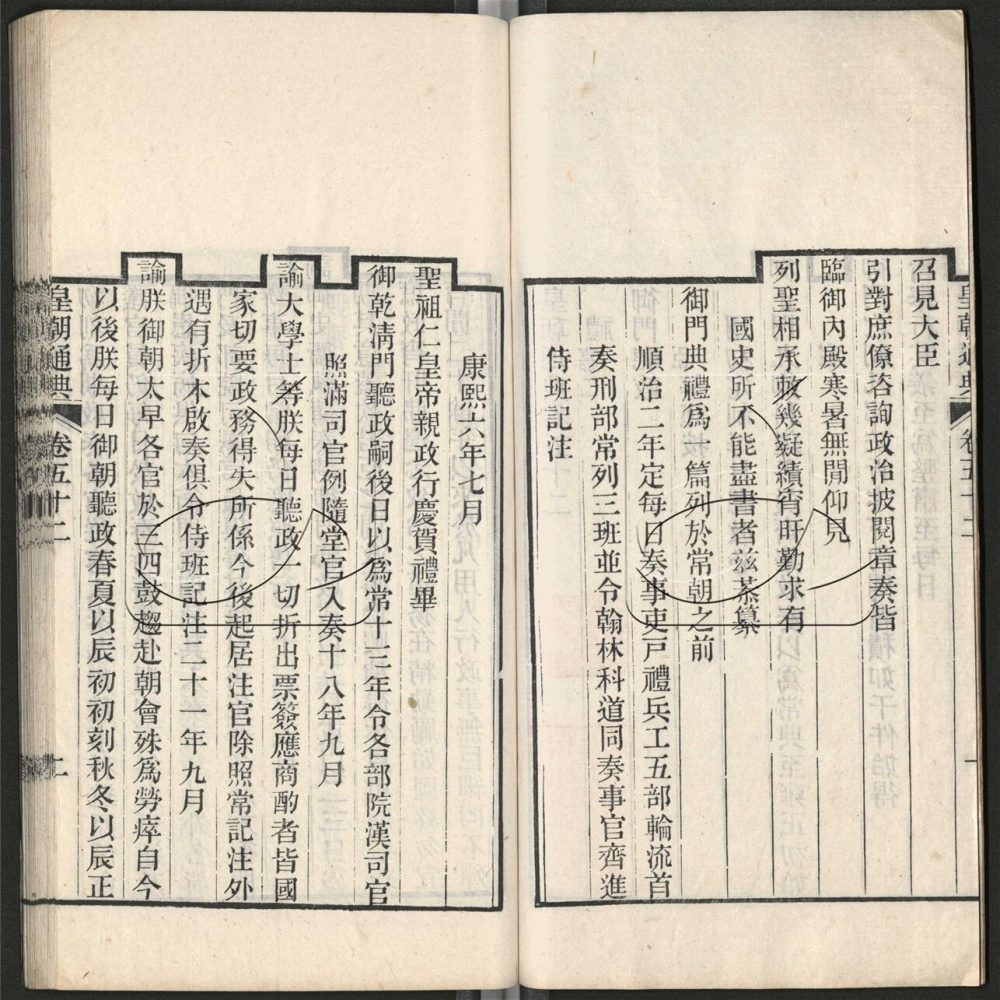 皇朝通典 卷五十二 一
召見大臣
引對庶僚咨詢政治披閱章奏皆
臨御內殿寒暑無閒仰見
列聖相承敕幾疑績宵旰勤求有
國史所不能盡書者兹恭纂
御門典禮爲一篇列於常朝之前
順治二年定每日奏事吏戸禮兵工五部輪流首
奏刑部常列三班並令翰林科道同奏事官齊進
侍班記注
康熙六年七月
聖祖仁皇帝親政行慶賀禮畢
御乾淸門聽政嗣後日以爲常十三年令各部院漢司官
照滿司官例隨堂官入奏十八年九月
諭大學士等朕每日聽政一切折出票簽應商酌者皆國
家切要政務得失所係今後起居注官除照常記注外
遇有折本啟奏俱令侍班記注二十一年九月
諭朕御朝太早各官於三四鼓趨赴朝會殊爲勞瘁自今
以後朕每日御朝聽政春夏以辰初初刻秋冬以辰正
皇朝通典 卷五十二 二